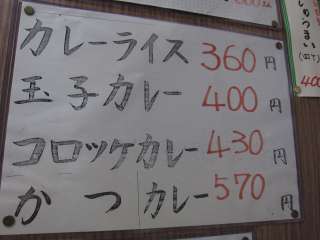 カレーライス 360円
玉子カレー 400円
コロッケカレー 430円
かつカレー 570円